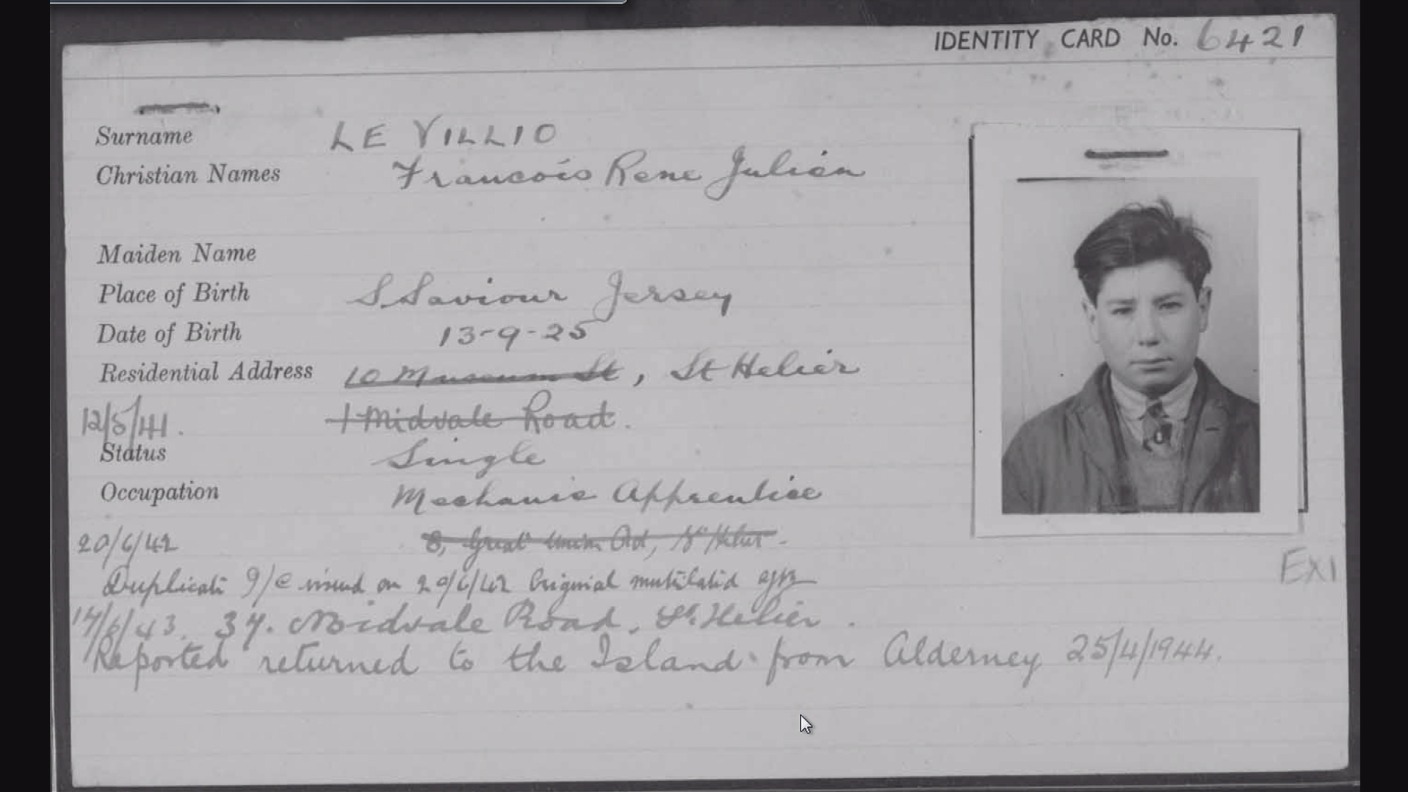 IDENTITY CARD No. 6421
Surname LE VILLIO
Christian Names Francois Rene Julien
Maiden Name
Place of Birth S Saviour Jersey
Date of Birth 13-9-25
Residential Address 10 Museum St, St Helier
12/5/41. 1 Midvale Road.
Status Single
Occupation Mechanic Apprentice
20/6/42 8, Great Union Rd, St Helier.
Duplicate I/C issued on 20/6/42 Original mutilated
EX1
14/8/43. 37. Midvale Road, St. Helier.
Reported returned to the Island from Alderney 25/4/1944.